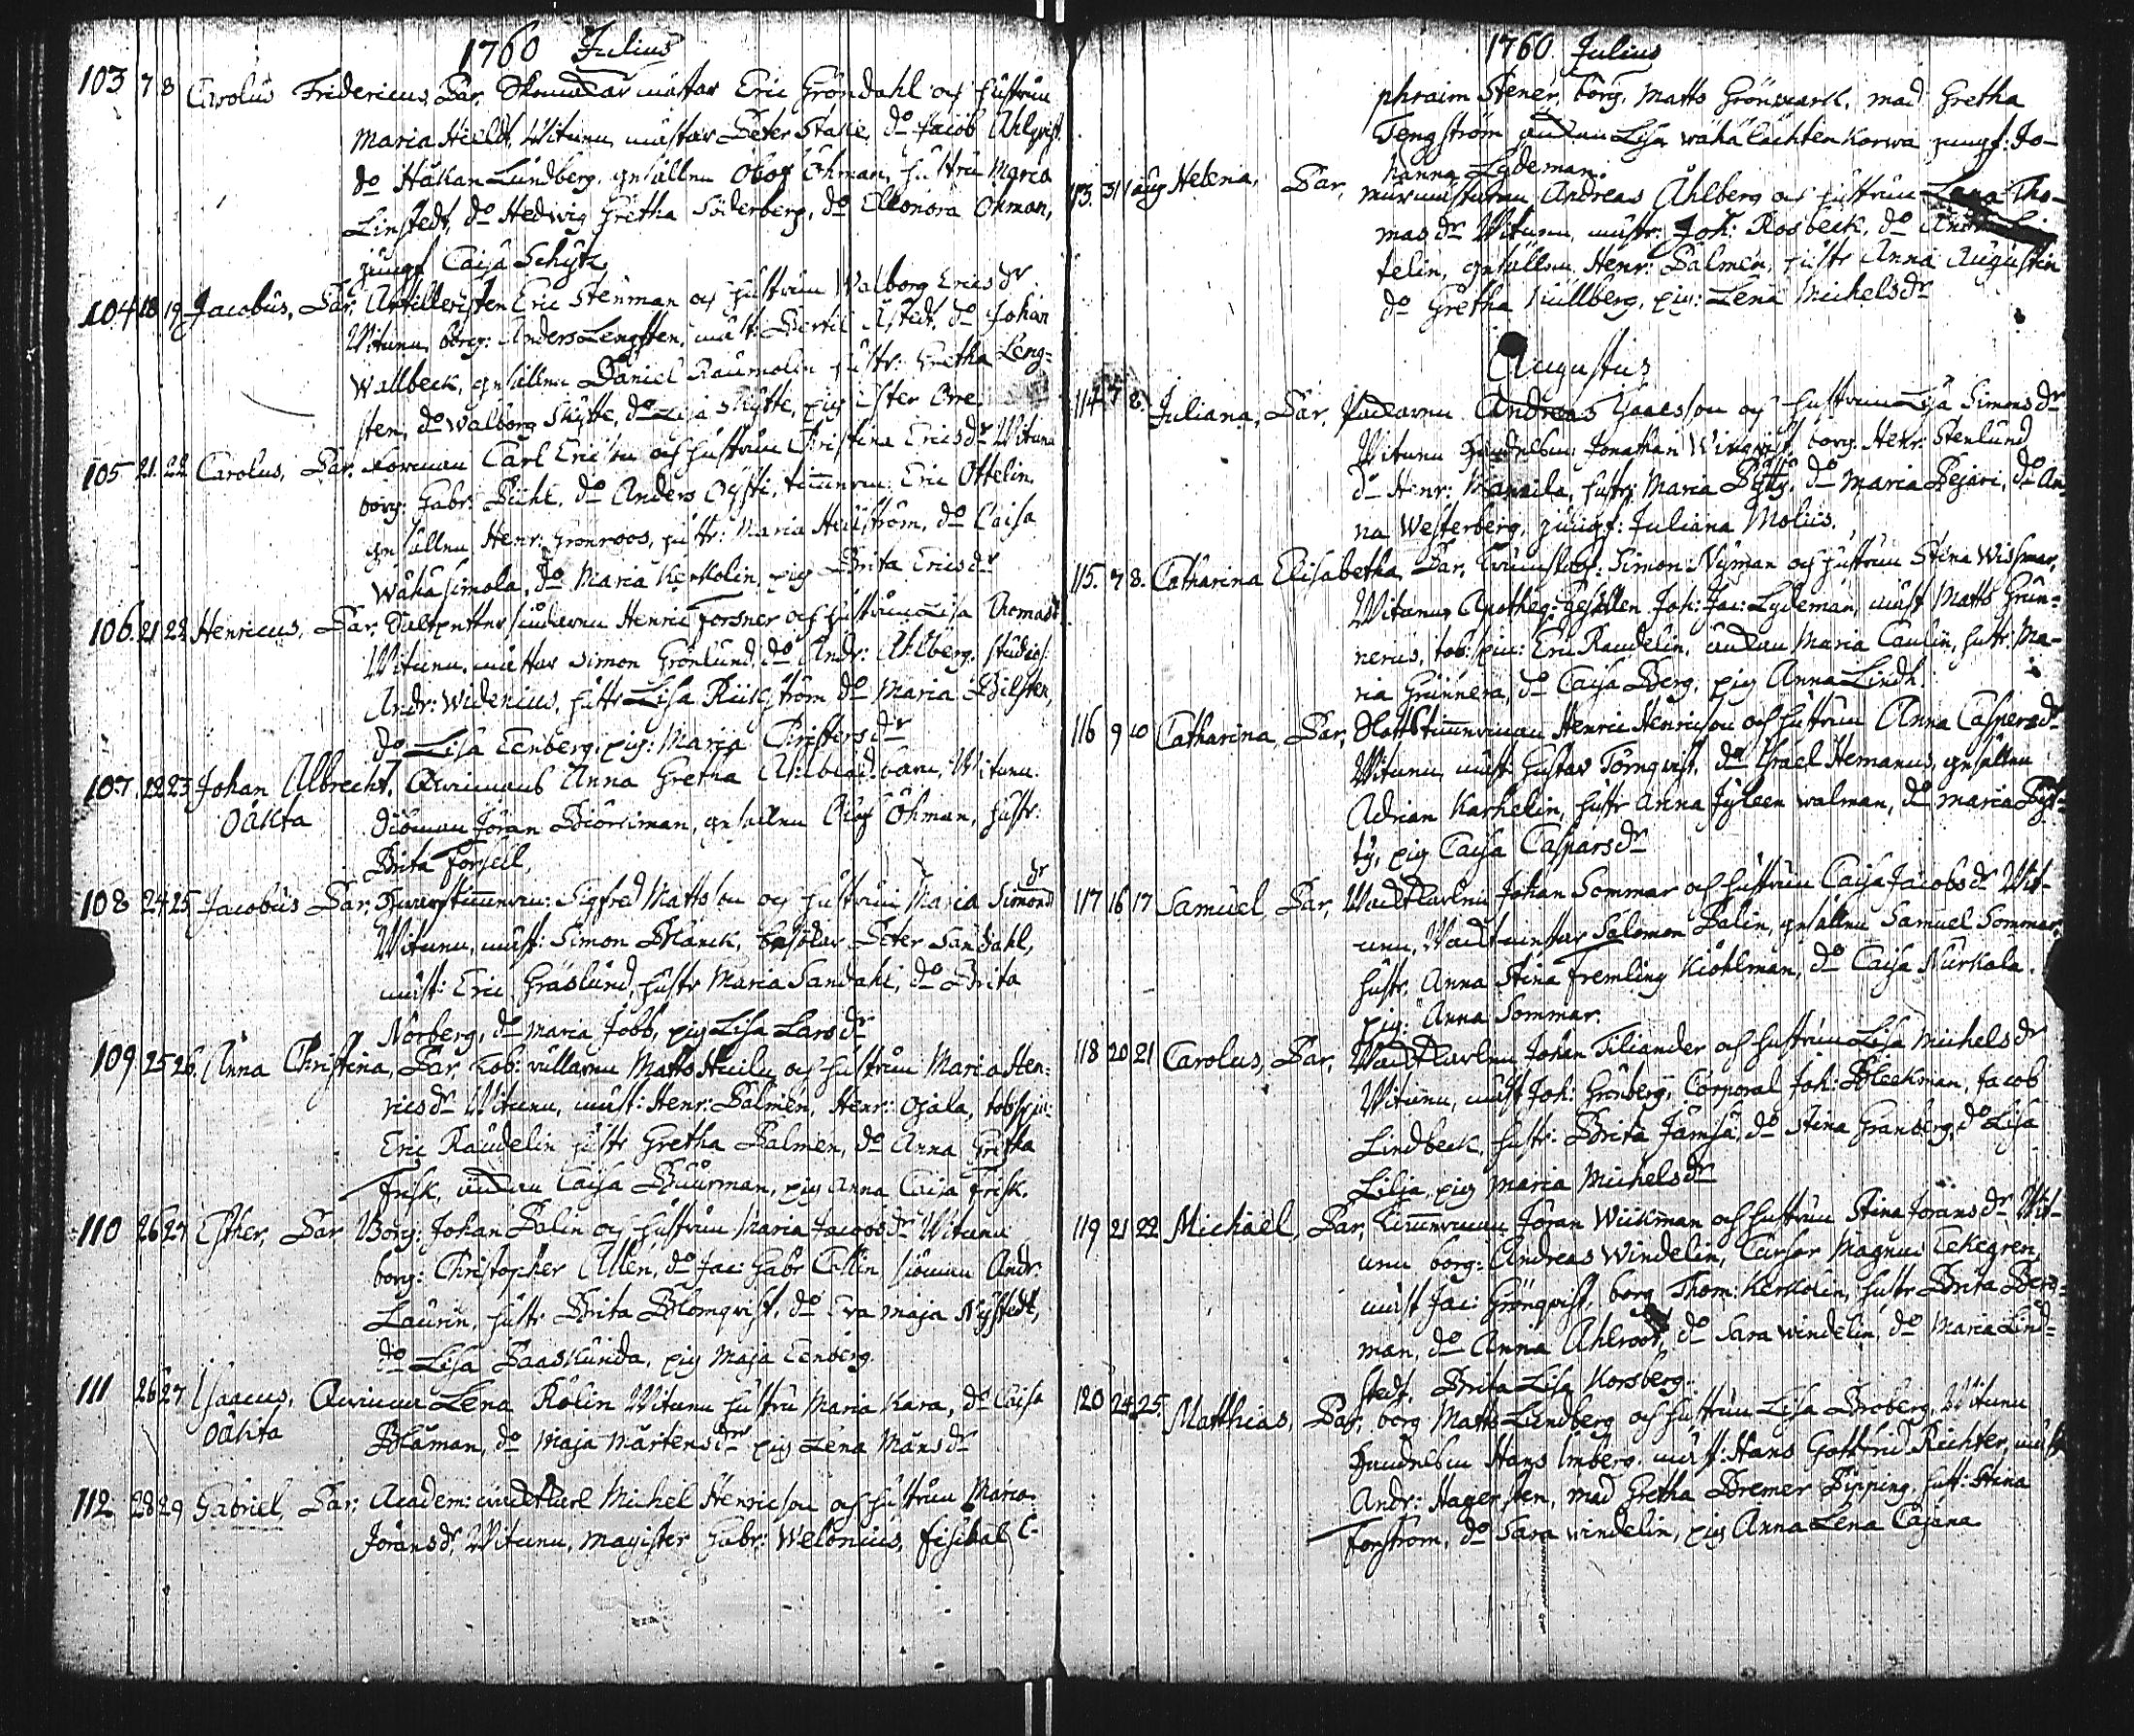 1760 Julius
103 7 8 Carolus Fridericus, Par. Skomakar mästar Eric Gröndahl och hustrun
Maria Heldt, Witnen, mästar Peter Stake, do Jacob Ahlqvist
do Håkan Lundberg, gesällen Olof Öhman, hustru Maria
Linstedt, do Hedwig Gretha Söderberg, do Elleonora Öhman,
jungf Caisa Schytz.
104 18 19 Jacobus, Par. Artilleristen Eric Stenman och hustrun Walborg Ericsdr
Witnen, borg: Anders Lengsten, mäst: Bertil Åstedt, do Johan
Wallbeck, gesällen Daniel Raumolin hustr: Gretha Leng-
sten, do Walborg Skytte, do Lisa Skytte, pig Ester Orre
105 21. 22 Carolus, Par. Carl Ericson och hustrun Christina Ericsdr Witnen
borg: Gabr: Pihl, do Anders Öysti, timerm: Eric Ottelin,
gesällen Henr: Grönroos, hustr: Maria Hellström, do Caisa
Wähäsimola, do Maria Kerkolin, pig Brita Ericsdr
106. 21 22 Henricus, Par. Henric Forsner och hustrun Lisa Thomasdr
Witnen, mästar Simon Grönlund, do Andr: Ahlberg, studios:
Andr: Widenius, hustr Lisa Riickström do Maria Bilsten,
do Lisa Eenberg, pig: Maria Christersdr
107. 22 23 Johan Albrecht, Qwinans Anna Gretha Ahlblad barn, Witnen.
Oäkta Siöman Jöran Biörniman, gesällen Olof Öhman, hustr:
Brita Forsell,
108 24 25 Jacobus Par. Sigfred Mattsson och hustrun Maria Simonsdr
Witnen, mäst: Simon Blanck, Peter Sandahl,
mäst: Eric Gräslund, hustr Maria Sandahl, do Brita
Norberg, do Maria Jobb, pig Lisa Larsdr
109 25 26. Anna Christina, Par. Tob: Matts Huilu och hustrun Maria Hen-
ricsdr Witnen, mäst: Henr: Palmén, Henr: Ojala, tobspin:
Eric Raudelin hustr Gretha Palmen, do Anna Gretha
Frisk, änkan Caisa Buurman, pig Anna Caisa Frisk.
110 26 27 Esther, Par Borg: Johan Palin och hustrun Maria Jacobsdr Witnen
borg: Christopher Allen, do Jac: Gabr Callin siöman Andr:
Laurin, hustr Brita Blomqvist, do Eva Maja Nystedt,
do Lisa Paaskunda, pig Maja Eenberg
111 26 27 Isaacus, Qwinan Lena Rolin Witnen hustru Maria Kara, do Caisa
Oäkta Blåman, do Maja Mårtensdr pig Lena Månsdr
112 28 29 Gabriel, Par: Academ: Michel Henricson och hustrun Maria
Jöransdr, Witnen, Magister Gabr: Welonius, fiskal E-
1760 Julius
phraim Stener, borg. Matts Grönwall, mad Gretha
Tengström änkan Lisa Wähä Lächtenkorwa jungf: Jo-
hanna Lydeman.
113. 31 1 aug Helena, Par, Murmästaren Andreas Ahlberg och hustrun Lena Tho-
masdr Witnen, mästr: Joh: Rosbeck, do
telin, gesällen Henr: Palmen, hustr Anna Augustin
do Gretha Kullberg, pig: Lena Michelsdr
Augustus
114 7 8. Juliana, Par, Andreas Isacsson och hustrun Lisa Simonsdr
Witnen Handelsm: Jonathan Winqvist, borg: Henr: Stenlund
do Henr: Mannila, hustr: Maria Pytty, do Maria Pejari, do An-
na Westerberg, jungf: Juliana Molius.
115. 7 8. Catharina Elisabetha, Par. Simon Nyman och hustrun Stina Wissmar,
Witnen, Apotheq: Gesällen Joh: Jac: Lydeman, mäst Matts Grun-
nerus, tob: spin: Eric Raudelin, änkan Maria Caulin, hustr Ma-
ria Grunnera, do Caisa Berg, pig Anna Lindh.
116 9 10 Catharina, Par, Slottstimerman Henric Henricson och hustrun Anna Caspersdr
Witnen mäst: Gustav Törnqvist, do Israel Hemanus, gesällen
Adrian Karhelin, hustr Anna Walman, do Maria Pyt-
ty, pig Caisa Casparsdr
117 16 17 Samuel, Par, Johan Sommar och hustrun Caisa Jacobsdr Wit-
nen, Salomon Palin, gesällen Samuel Sommar,
hustr, Anna Stina Fremling Kiöhlman, do Caisa Nurkala.
pig: Anna Sommar.
118 20 21 Carolus, Par, Johan Tiliander och hustrun Lisa Michelsdr
Witnen, mäst Joh: Grönberg, Corporal Joh: Bleekman, Jacob
Lindbeck, hustr: Brita Jamsä, do Stina Granberg, do Lisa
Lilja, pig Maria Michelsdr
119 21 22 Michaël, Par, Timerman Jöran Wiikman och hustrun Stina Jöransdr Wit-
nen borg: Andreas Windelin, Cursor Magnus Eekegren,
mäst Jac: Grönqvist, borg Thom: Kerkolin, hustr Brita Berg-
man, do Anna Ahlroos, do Sara Windelin, do Maria Lind-
stedt, Brita Lisa Korsberg.
120 24 25. Matthias, Par, borg Matts Lundberg och hustrun Lisa Broberg, Witnen
Handelsm Hans Imberg, mäst: Hans Gottfrid Richter, mäst
Andr: Hagersten, mad Gretha Bremer Pipping, hust: Stina
Forström, do Sara Windelin, pig Anna Lena Cajana